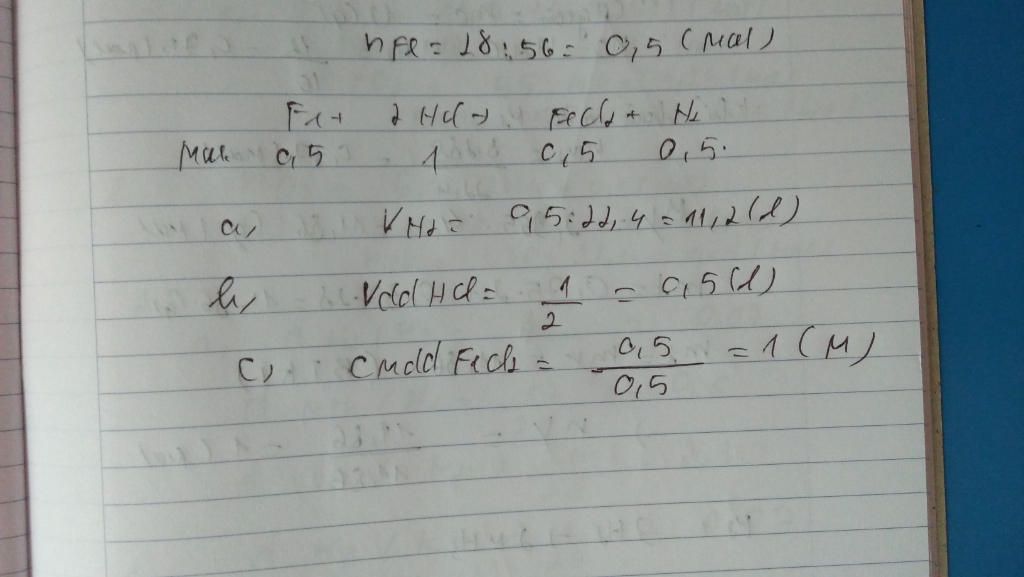 nFe = 28 : 56 = 0,5 (mol)
Fe + 2 HCl → FeCl2 + H2
Mol 0,5 1 0,5 0,5.
a, VH2 = 0,5 : 22,4 = 11,2 (l)
b, Vdd HCl = 1/2 = 0,5 (l)
c, CMdd FeCl2 = 0,5/0,5 = 1 (M)